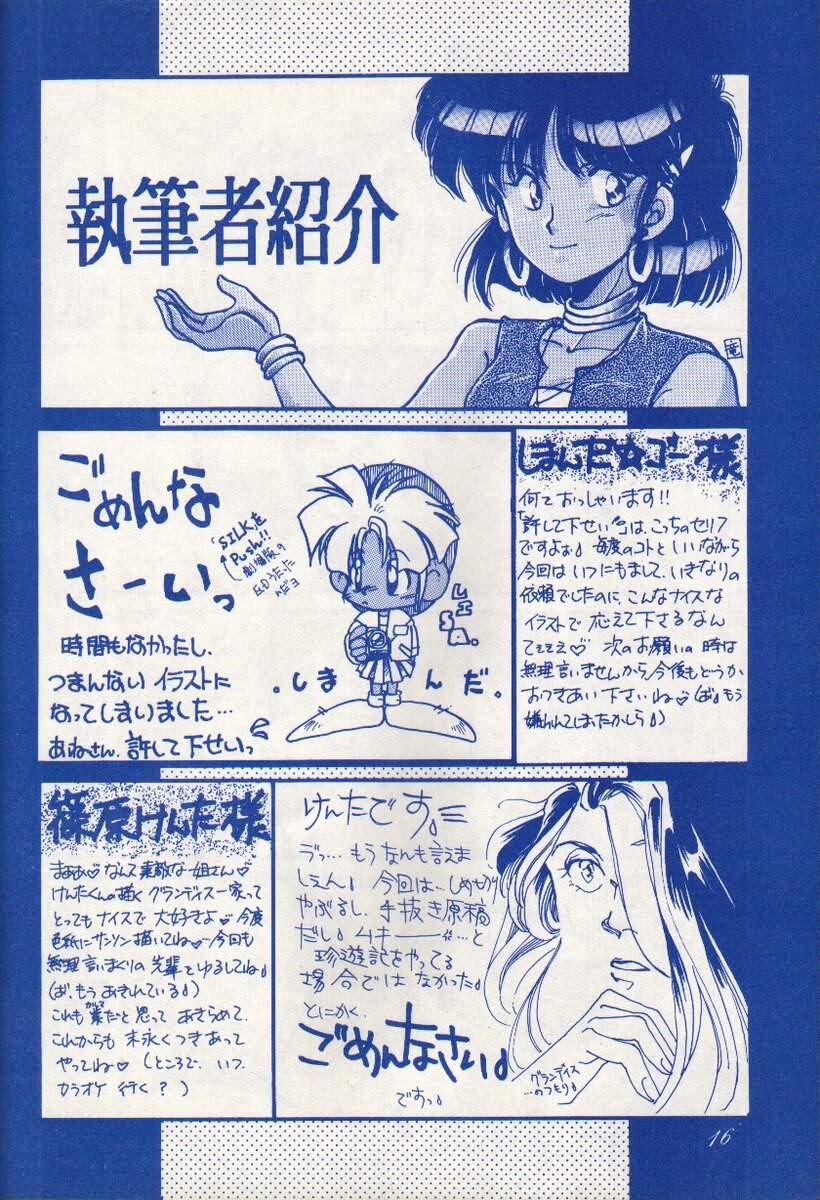 執筆者紹介
竜
ごめんな
さーいっ
「SILKを
Push!!
劇場版の
EDうたった
時間もなかったし、
つまんない イラストに
なってしまいました…
あねさん、許して下せいっ
。しまんだ。
しまんだ☆ゴー様
何ておっしゃいます!!
「許して下せい」は、こっちのセリフ
ですよぉ♪ 毎度のコトといいながら
今回は いつにもまして、いきなりの
依頼でしたのに こんなナイスな
イラストで 応えて下さるなんて
てえええ♡ 次のお願いの時は
無理言いませんから、今後もどうか
おつきあい下さいね♡ (ば♪もう
嫌われてしまったかしら♪)
篠原けんた様
まぁぁ♡なんて素敵な姐さん♡
けんたくんの描く グランディス一家って
とってもナイスで 大好きよ♡ 今度
色紙にサンソン描いてね♡…今回も
無理言いまくりの 先輩とゆるしてね♪
(ば、もう あきれている♪)
これも 業だと思って あきらめて、
これからも 末永くつきあって
やってね♡ (ところで、いつ、
カラオケ 行く?)
けんたです。
ゔっ… もう なんも言えま
しぇん♪ 今回は…しめきり
やぶるし、手抜き原稿
だし♪ ムキーー…と
珍遊記をやってる
場合では なかった♪
とにかく、
ごめんなさい♪
ですっ♪
グランディス
…のつもり♪
16